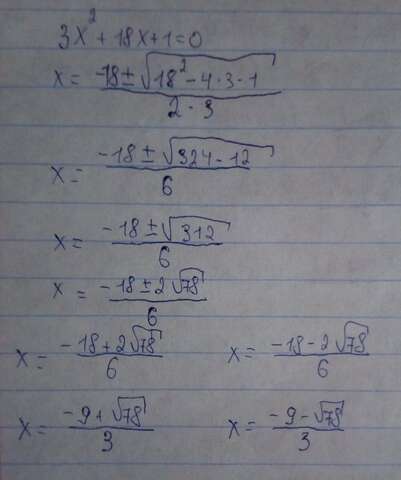 3x² + 18x + 1 = 0
x = (-18 ± √(18² - 4·3·1)) / (2·3)
x = (-18 ± √(324 - 12)) / 6
x = (-18 ± √312) / 6
x = (-18 ± 2√78) / 6
x = (-18 + 2√78) / 6    x = (-18 - 2√78) / 6
x = (-9 + √78) / 3    x = (-9 - √78) / 3